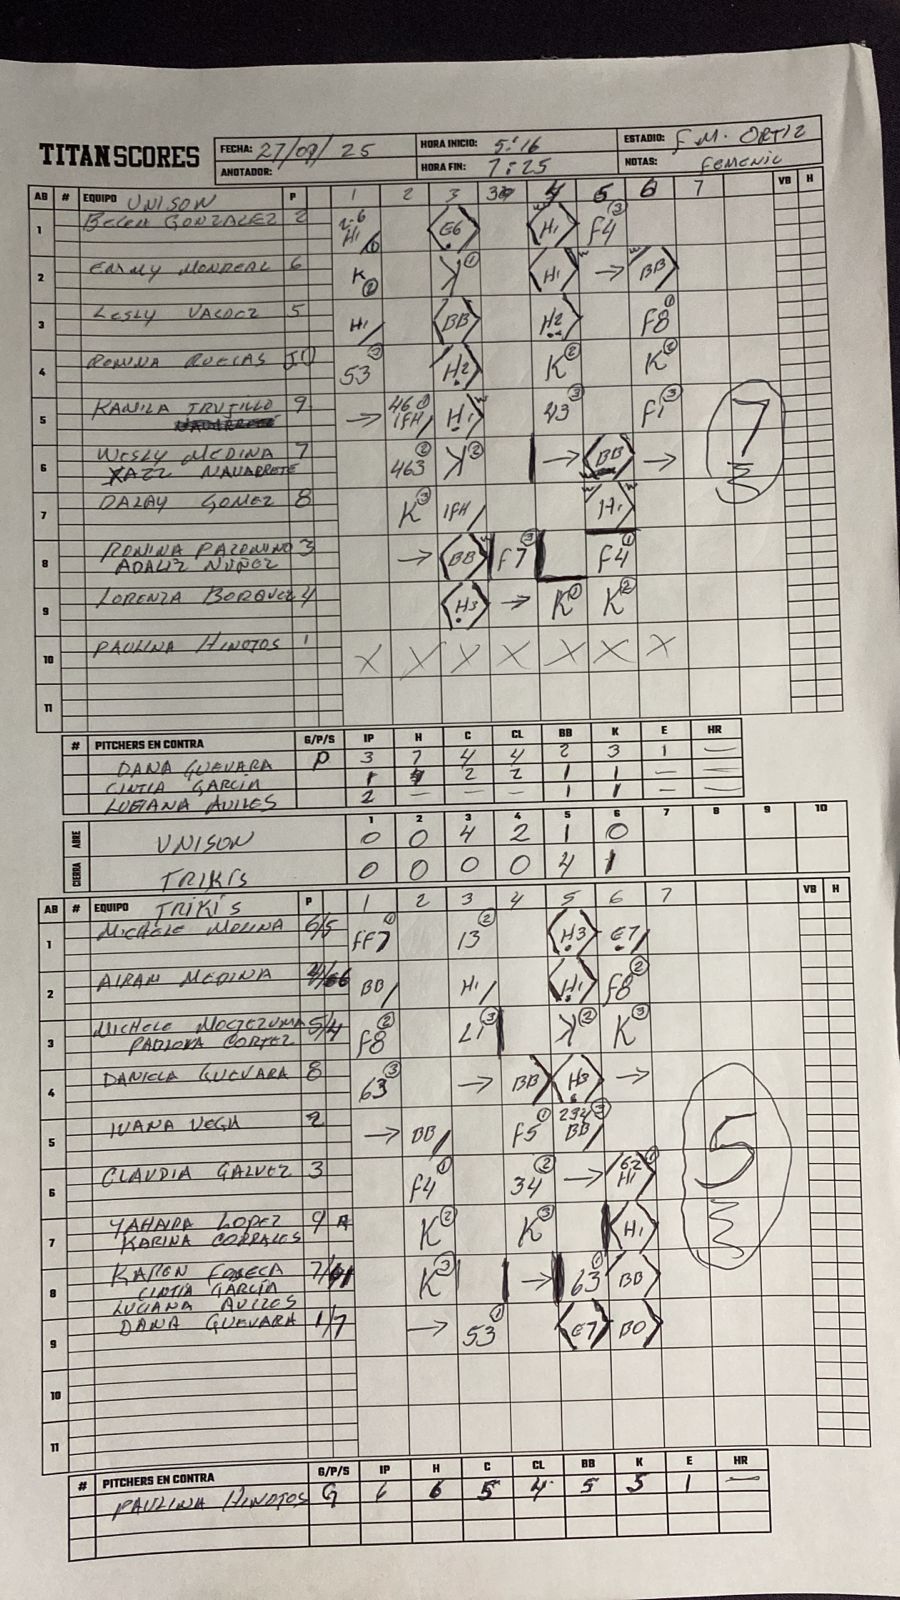 TITAN SCORES
FECHA: 27/09/25 HORA INICIO: 5:16 ESTADIO: F.M. ORTIZ
ANOTADOR: HORA FIN: 7:25 NOTAS: FEMENIL
AB # EQUIPO UNISON P 1 2 3 4 5 6 7 VB H
1 BELEN GONZALEZ 2 2-6 H1 E6 H1 F4 3
2 EMMY MONREAL 6 K 2 K 1 H1 → BB
3 LESLY VALDEZ 5 H1 BB H2 F8 1
4 ROMINA RUELAS 10 53 3 H2 K 2 K 2
5 KAMILA TRUJILLO 9 → 46 1 IFH H1 43 3 F1 3 7
6 WESLY MEDINA 7 463 2 K 2 → BB →
YAZZ NAVARRETE
7 DALAY GOMEZ 8 K 3 IFH H1
8 ROMINA PALOMINO 3 → BB F7 3 F4 1
ADALIZ NUÑEZ
9 LORENZA BORQUEZ 4 H3 → K 1 K 2
10 PAULINA HINOJOS 1 X X X X X X X
11
# PITCHERS EN CONTRA G/P/S IP H C CL BB K E HR
DANA GUEVARA P 3 7 4 4 2 3 1 —
CINTIA GARCÍA 1 4 2 2 1 1 — —
LUCIANA AVILES 2 — — — 1 1 — —
1 2 3 4 5 6 7 8 9 10
ABRE UNISON 0 0 4 2 1 0
CIERRA TRIKIS 0 0 0 0 4 1
AB # EQUIPO TRIKI'S P 1 2 3 4 5 6 7 VB H
1 MICHELE MOLINA 6/5 FF7 1 13 2 H3 E7
2 AIRAM MEDINA 4/6 BB H1 H1 F8 2
3 MICHELE MOCTEZUMA 5/4 F8 2 L1 3 K 2 K 3
PAULOVA CORTEZ
4 DANIELA GUEVARA 8 63 3 → BB H3 →
5 IVANA VEGA 2 → BB F5 1 232 3 BB 5
6 CLAUDIA GALVEZ 3 F4 1 34 2 → 62 1 H1
7 YAHAIRA LOPEZ 9 K 2 K 3 H1
KARINA CORRALES
8 KAREN FONSECA 7/1 K 3 → 63 1 BB
CINTIA GARCÍA
LUCIANA AVILES
9 DANA GUEVARA 1/7 → 53 1 E7 BB
10
11
# PITCHERS EN CONTRA G/P/S IP H C CL BB K E HR
PAULINA HINOJOS G 6 6 5 4 5 5 1 —